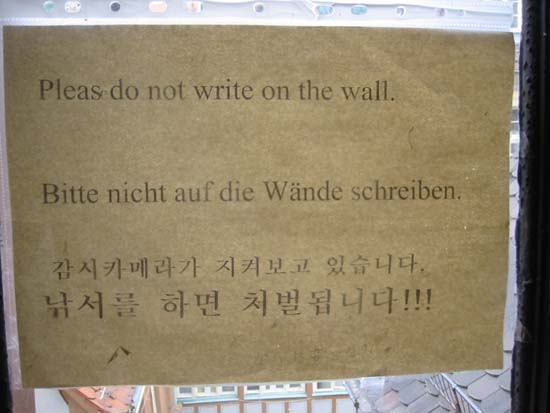 Pleas do not write on the wall.
Bitte nicht auf die Wände schreiben.
감시카메라가 지켜보고 있습니다.
낚서를 하면 처벌됩니다!!!